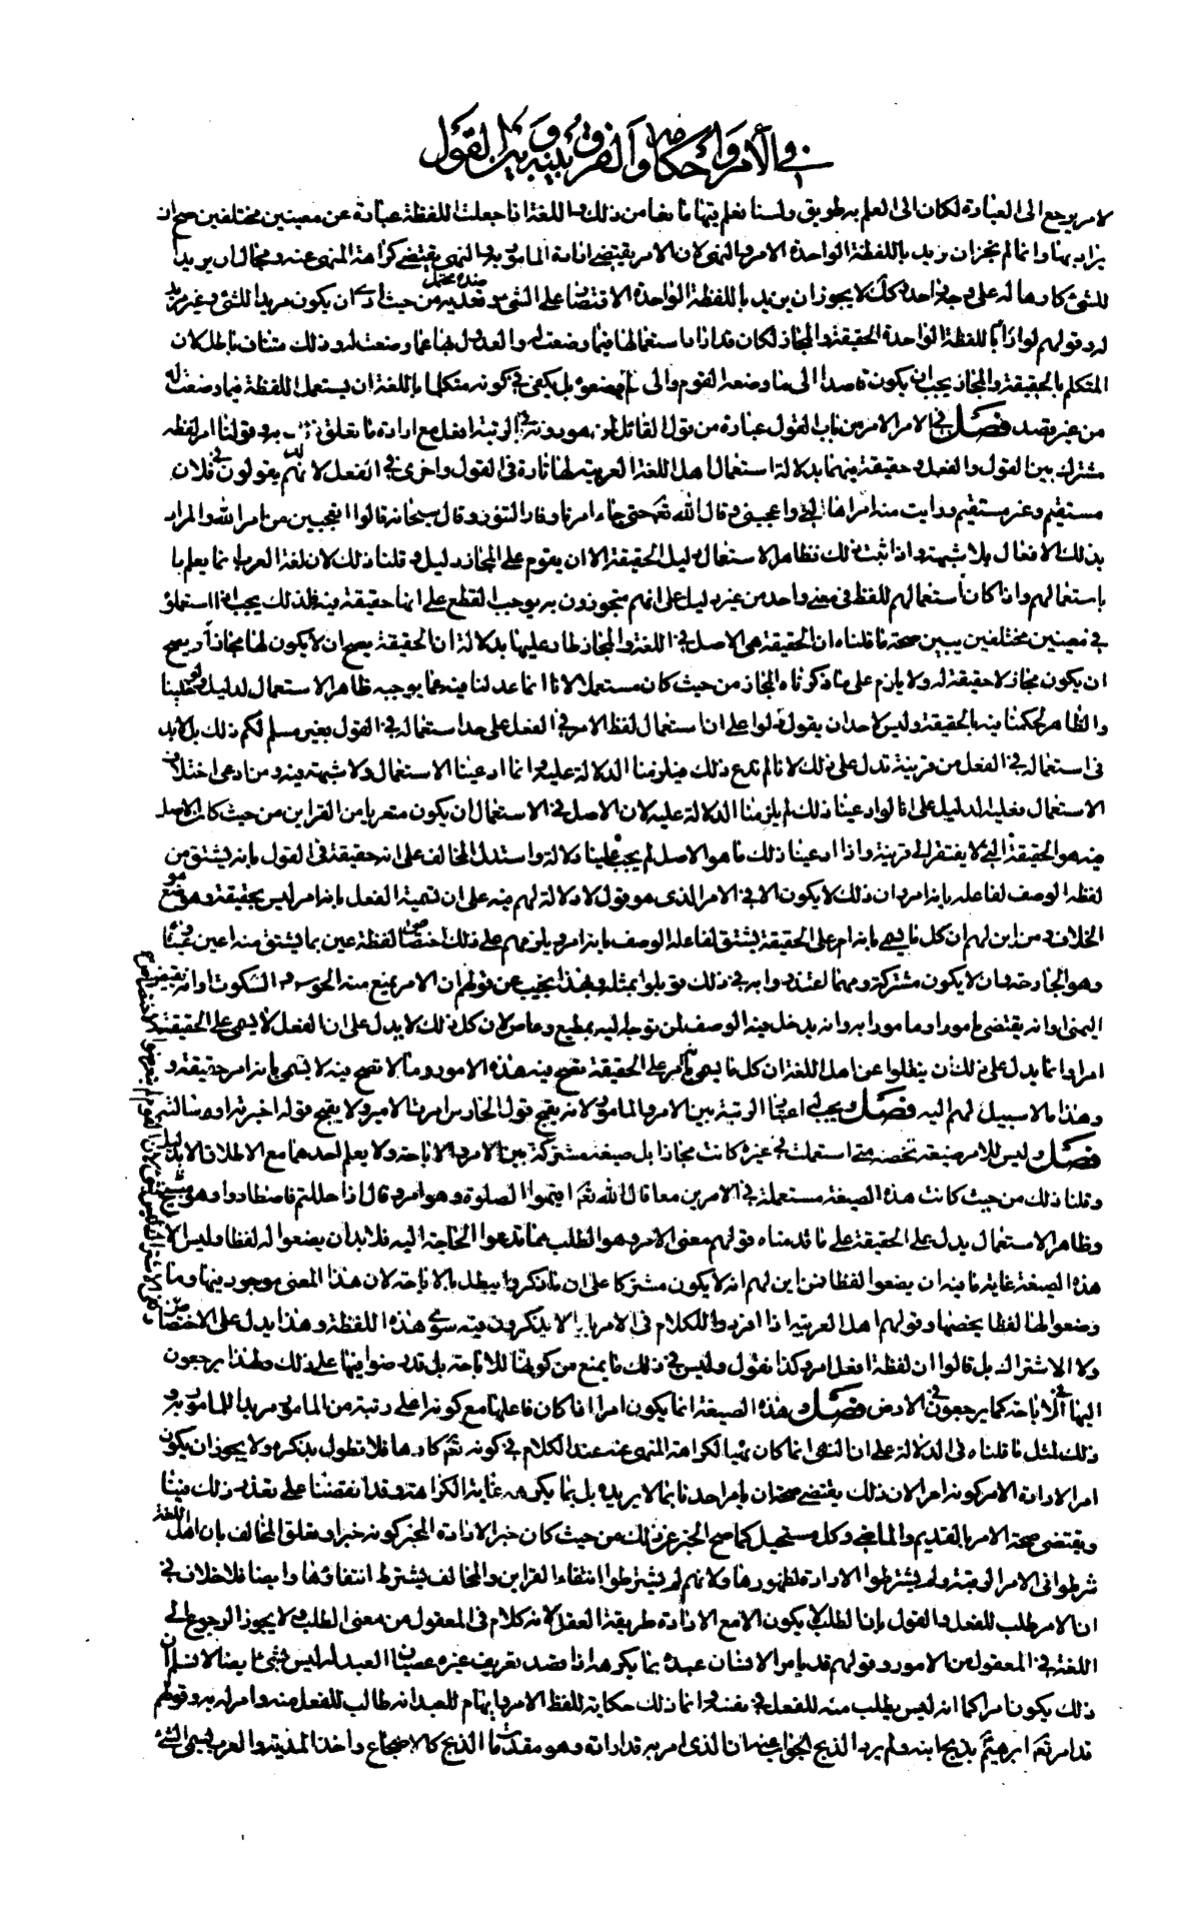 في الأمر وأحكامه والفرق بينه وبين القول
لامر يرجع الى العبادة لكان الى العلم به طريق ولسنا نعلم بينهما مانعا من ذلك اللغة انما جعلت اللفظة عبارة عن معنيين مختلفين صح ان
يراد بهما وانما لم يجز ان يريد باللفظة الواحدة الامر والنهى لان الامر يقتضى ارادة المامور به والنهى يقتضى كراهة المنهى عنه ومحال ان يريد
للشئ كارها له على وجه واحد كك لا يجوز ان يريد باللفظة الواحدة الاقتصار على الشئ وتعديه من حيث ان يكون مريدا للشئ وغير مريد
له وقولهم لو اراد باللفظة الواحدة الحقيقة والمجاز لكان قد اراد استعمالها فيما وضعت له والعدول بها عما وضعت له وذلك متناف باطل لان
المتكلم بالحقيقة والمجاز يجب ان يكون قاصدا الى ما وضعه القوم والى ما لم يضعوه بل يكفى في كونه متكلما باللغة ان يستعمل اللفظة فيما وضعت له
من غير قصد فصل في الامر الامر من باب القول عبارة من قول القائل لمن هو دونه في الرتبة افعل مع ارادة ما تعلق به وقولنا امر لفظه
مشترك بين القول والفعل وحقيقة فيهما بدلالة استعمال اهل اللغة العربية لها تارة في القول واخرى في الفعل لانهم يقولون امر فلان
مستقيم وغير مستقيم ورايت منه امرا هالنى واعجبنى وقال الله تع حتى جاء امرنا وفار التنور وقال سبحانه قالوا اتعجبين من امر الله والمراد
بذلك الافعال بلا شبهة واذا ثبت ذلك فظاهر الاستعمال دليل الحقيقة الا ان يقوم على المجاز دليل وقلنا ذلك لان لغة العرب انما يعلم با
باستعمالهم واذا كان استعمالهم للفظ في معنى واحد من غير دليل على انهم متجوزون به يوجب القطع على انها حقيقة فيه فكذلك يجب اذا استعملو
في معنيين مختلفين يبين صحة ما قلناه ان الحقيقة هى الاصل في اللغة والمجاز طار عليها بدلالة ان الحقيقة يصح ان لا يكون لها مجازا ولا يصح
ان يكون مجاز لا حقيقة له ولا يلزم على ما ذكرناه المجاز من حيث كان مستعملا لانا انما عدلنا فيه عما يوجبه ظاهر الاستعمال لدليل ولو خلينا
والظاهر لحكمنا فيه بالحقيقة وليس لاحد ان يقول دلوا على ان استعمال لفظ الامر في الفعل على حد استعماله في القول بغير مسلم لكم ذلك بل لا بد
فى استعماله في الفعل من قرينة تدل على ذلك لانا لم ندع ذلك فيلزمنا الدلالة عليه وانما ادعينا الاستعمال ولا شبهة فيه ومن ادعى اختلاف
الاستعمال فعليه الدليل على انا لو ادعينا ذلك لم يلزمنا الدلالة عليه لان الاصل في الاستعمال ان يكون متعريا من القراين من حيث كان الاصل
فيه هو الحقيقة التى لا يفتقر الى قرينة واذا ادعينا ذلك ما هو الاصل لم يجب علينا دلالة واستدل المخالف على انه حقيقة فى القول بانه يشتق من
لفظه الوصف لفاعله بانه امر وان ذلك لا يكون الا في الامر الذى هو قول لا دلالة لهم فيه على ان تسمية الفعل بانه امر ليس بحقيقة وهو موضع
الخلاف ومن اين لهم ان كل ما يسمى بانه امر على الحقيقة يشتق لفاعله الوصف بانه امر ويلزمهم على ذلك اختصاص لفظة عين بما يشتق منه اعين
وهو الجارحة وان لا يكون مشتركة ومهما اعتذروا به في ذلك قوبلوا بمثله وبهذا يجيب عن قولهم ان الامر يمنع منه الخرس والسكوت وانه نقيض
النهى وانه يقتضى مامورا ومامورا به وانه يدخل فيه الوصف لمن توجه اليه بمطيع وعاص لان كل ذلك لا يدل على ان الفعل لا يسمى على الحقيقة
امرا وانما يدل على ذلك ان ينقلوا عن اهل اللغة ان كل ما يسمى بانه امر على الحقيقة تصح فيه هذه الامور وما لا تصح فيه لا يسمى بانه امر حقيقة و
وهذا ما لا سبيل لهم اليه فصل يجب اعتبار الرتبة بين الامر والمامور لانه يقبح قول الخادم امرت الامير ولا يقبح قوله اخبرته او سالته
فصل وليس للامر صيغة تخصه متى استعملت في غيره كانت مجازا بل صيغة مشتركة بين الامر والاباحة ولا يعلم احدهما مع الاطلاق الا بدليل
وقلنا ذلك من حيث كانت هذه الصيغة مستعملة في الامرين معا قال الله تع اقيموا الصلوة وهو امر وقال اذا حللتم فاصطادوا وهو مبيح
وظاهر الاستعمال يدل على الحقيقة على ما قدمناه قولهم معنى الامر وهو الطلب مما تدعوا الحاجة اليه فلا بد ان يضعوا له لفظا وليس الا
هذه الصيغة غاية ما فيه ان يضعوا لفظا فمن اين لهم انه لا يكون مشتركا على ان ما ذكروا يبطل بالاباحة لان هذا المعنى موجود فيها وما
وضعوا لها لفظا يخصها وقولهم اهل العربية اذا افردوا للكلام فى الامر بابا لا يذكرون فيه سوى هذه اللفظة وهذا يدل على الاختصاص
ولا الاشتراك بل قالوا ان لفظة افعل امر وكذا نقول وليس في ذلك ما يمنع من كونها للاباحة بل قد رضوا فيها على ذلك ولهذا يرجعون
اليها في الاباحة كما يرجعون في الارض فصل وهذه الصيغة انما يكون امرا اذا كان فاعلها مع كونه اعلى رتبة من المامور مريدا للمامور به و
وذلك لمثل ما قلناه فى الدلالة على ان النهى انما كان نهيا لكراهة المنهى عنه عند الكلام في كونه تع كارها فلا نطول بذكره ولا يجوز ان يكون
امرا لارادة الامر كونه امرا لان ذلك يقتضى صحة ان يامر احدنا بما لا يريده بل بما يكرهه غاية الكراهة وقد انقضنا على تعذر ذلك فينا
ويقتضى صحة الامر بالقديم والماضى وكل مستحيل كما صح الخبر عن ذلك من حيث كان خبرا لارادة المخبر كونه خبرا وتعلق المخالف بان اهل اللغة
شرطوا فى الامر الرتبة ولم يشترطوا الارادة لظهورها ولانهم لم يشترطوا انتفاء القراين والمخالف يشترط انتفاؤها وايضا فلا خلاف في
ان الامر طلب للفعل والقول بان الطلب لا يكون الا مع الارادة طريقة العقل لانه كلام فى المعقول من معنى الطلب ولا يجوز الرجوع الى
اللغة في المعقول من الامور وقولهم قد يامر الانسان عبده بما يكره اذا قصد تعريف غيره عصيان العبد له ليس بشئ ايضا لانا نسلم ان
ذلك يكون امرا كما انه ليس يطلب منه للفعل في نفسه وانما ذلك حكاية للفظ الامر بايهام للعبد انه طالب للفعل منه وامر له به وقولهم
قد امر تع ابرهيم بذبح ابنه ولم يرد الذبح الجواب عنه ان الذى امر به قد اراده وهو مقدمات الذبح كالاضجاع واخذ المدية والعرب يسمى الشئ